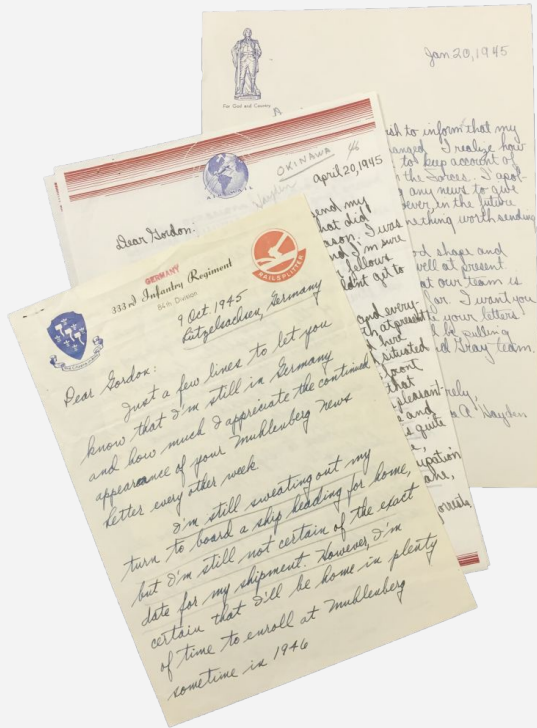 For God and Country
Jan 20, 1945
ish to inform that my
anged. I realize how
to keep account of
the Forces. I apol-
any news to give
wever, in the future
mething worth sending
od shape and
well at present
at our team is
far. I want you
your letters
be pulling
d Gray team.
rely,
a A. Hayden
OKINAWA
April 20, 1945
Dear Gordon,
end my
hat did
ason. I was
nd I'm sure
fellows
ldn't get to
and every-
that present
here
situated
front
that
pleasant
and
is quite
upation
GERMANY
333rd Infantry Regiment
84th Division
RAILSPLITTER
9 Oct. 1945
Lützelsachsen, Germany
Dear Gordon:
Just a few lines to let you
know that I'm still in Germany
and how much I appriciate the continued
appearance of your Muhlenberg News
Letter every other week.
I'm still sweating out my
turn to board a ship heading for home,
but I'm still not certain of the exact
date for my shipment. However, I'm
certain that I'll be home in plenty
of time to enroll at Muhlenberg
sometime in 1946